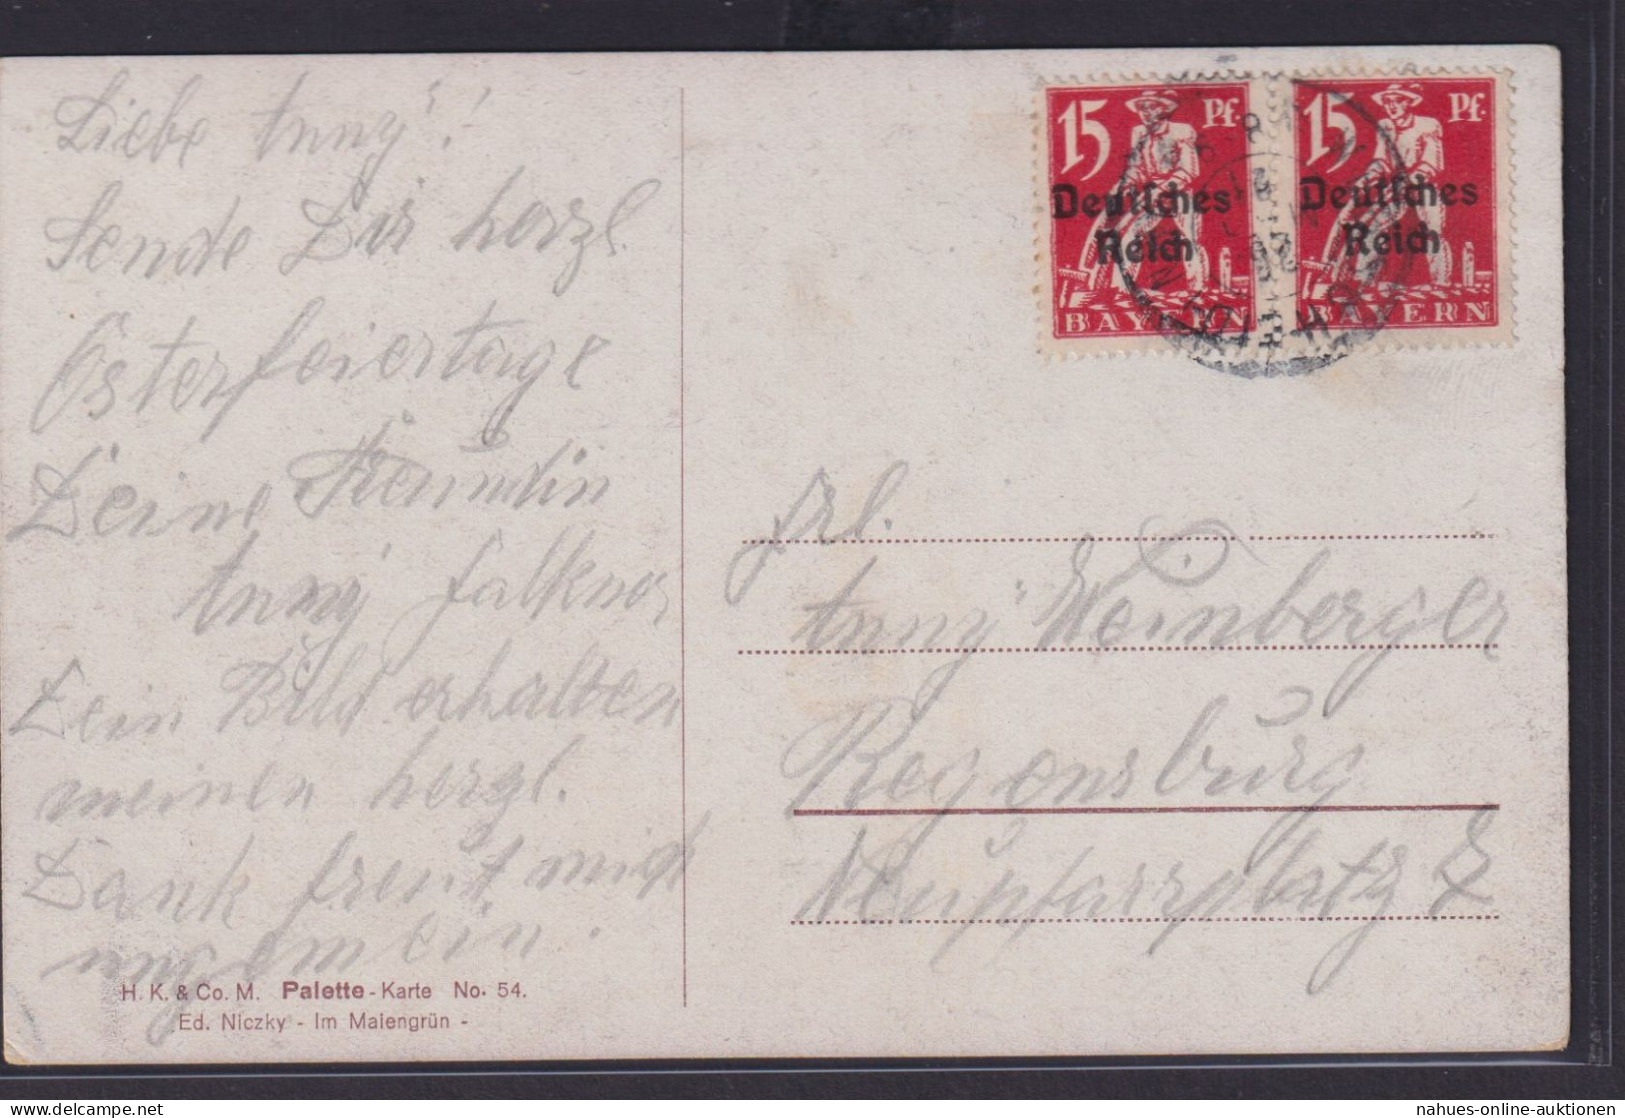 Liebe Anny!
Sende Dir herzl.
Osterfeiertage
Deine Freundin
Anny
Dein Bild erhalten
meinen herzl.
Dank freut mich
ungemein.
H. K. & Co. M. Palette-Karte No. 54.
Ed. Niczky - Im Maiengrün -
15 Pf. Deutsches Reich BAYERN
15 Pf. Deutsches Reich BAYERN
Frl.
Anny Weinberger
Regensburg
Neupfarrplatz
nahues-online-auktionen